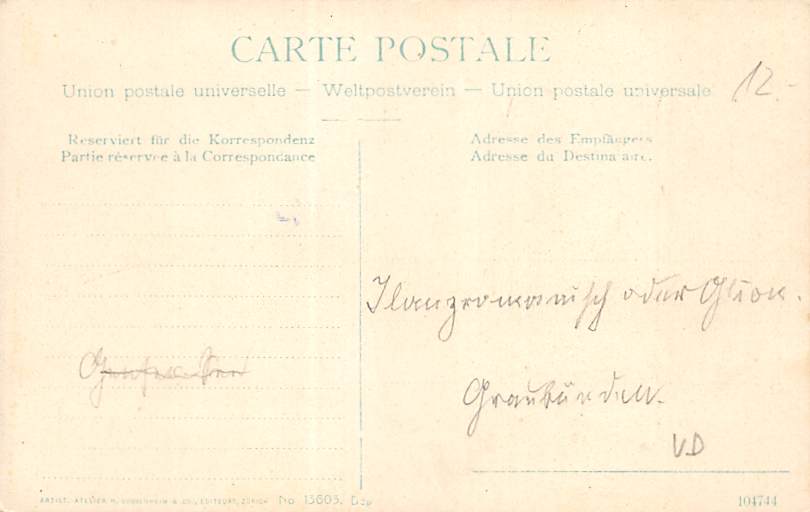 CARTE POSTALE
Union postale universelle — Weltpostverein — Union postale universale
12.-
Reserviert für die Korrespondenz
Partie réservée à la Correspondance
Adresse des Empfängers
Adresse du Destinataire.
Ilanz romanisch oder
Graubünden.
VD
ARTIST. ATELIER H. GUGGENHEIM & CO., EDITEURS, ZÜRICH No 13603. Dép
104744